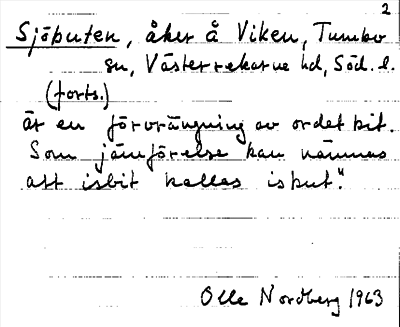 2
Sjöbuten, åker å Viken, Tumbo
sn, Västerrekarne hd, Söd. l.
(forts.)
är en förvrängning av ordet bit.
Som jämförelse kan nämnas
att isbit kallas isbut."
Olle Nordberg 1963